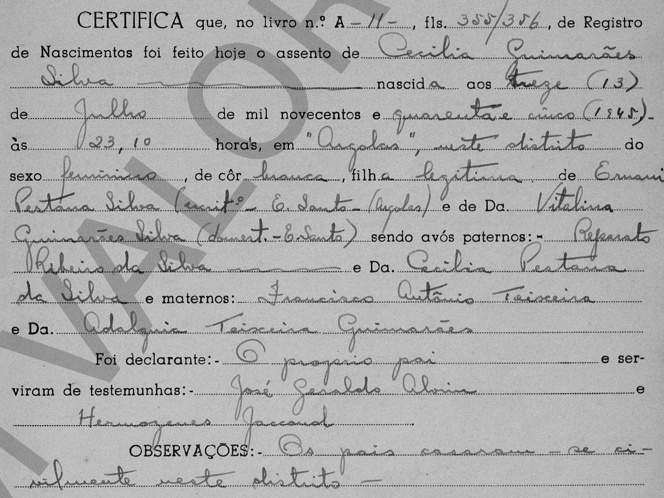 CERTIFICA que, no livro n.º A -11-, fls. 355/356, de Registro
de Nascimentos foi feito hoje o assento de Cecilia Guimarães
Silva nascida aos treze (13)
de Julho de mil novecentos e quarenta e cinco (1945)-
às 23,10 horas, em "Argolas", neste distrito do
sexo feminino, de côr branca, filha legitima de Ernani
Pestana Silva (escritº- E. Santo- (Argolas) e de Da. Vitalina
Guimarães Silva (domest.-E.Santo) sendo avós paternos:- Reparato
Ribeiro da Silva e Da. Cecilia Pestana
da Silva e maternos: Francisco Antônio Teixeira
e Da. Teixeira Guimarães
Foi declarante:- O proprio pai e ser-
viram de testemunhas:- José Geraldo Alvim e
Hermogenes Jaccoud.
OBSERVAÇÕES:- Os pais casaram-se ci-
vilmente neste distrito -
VALOR